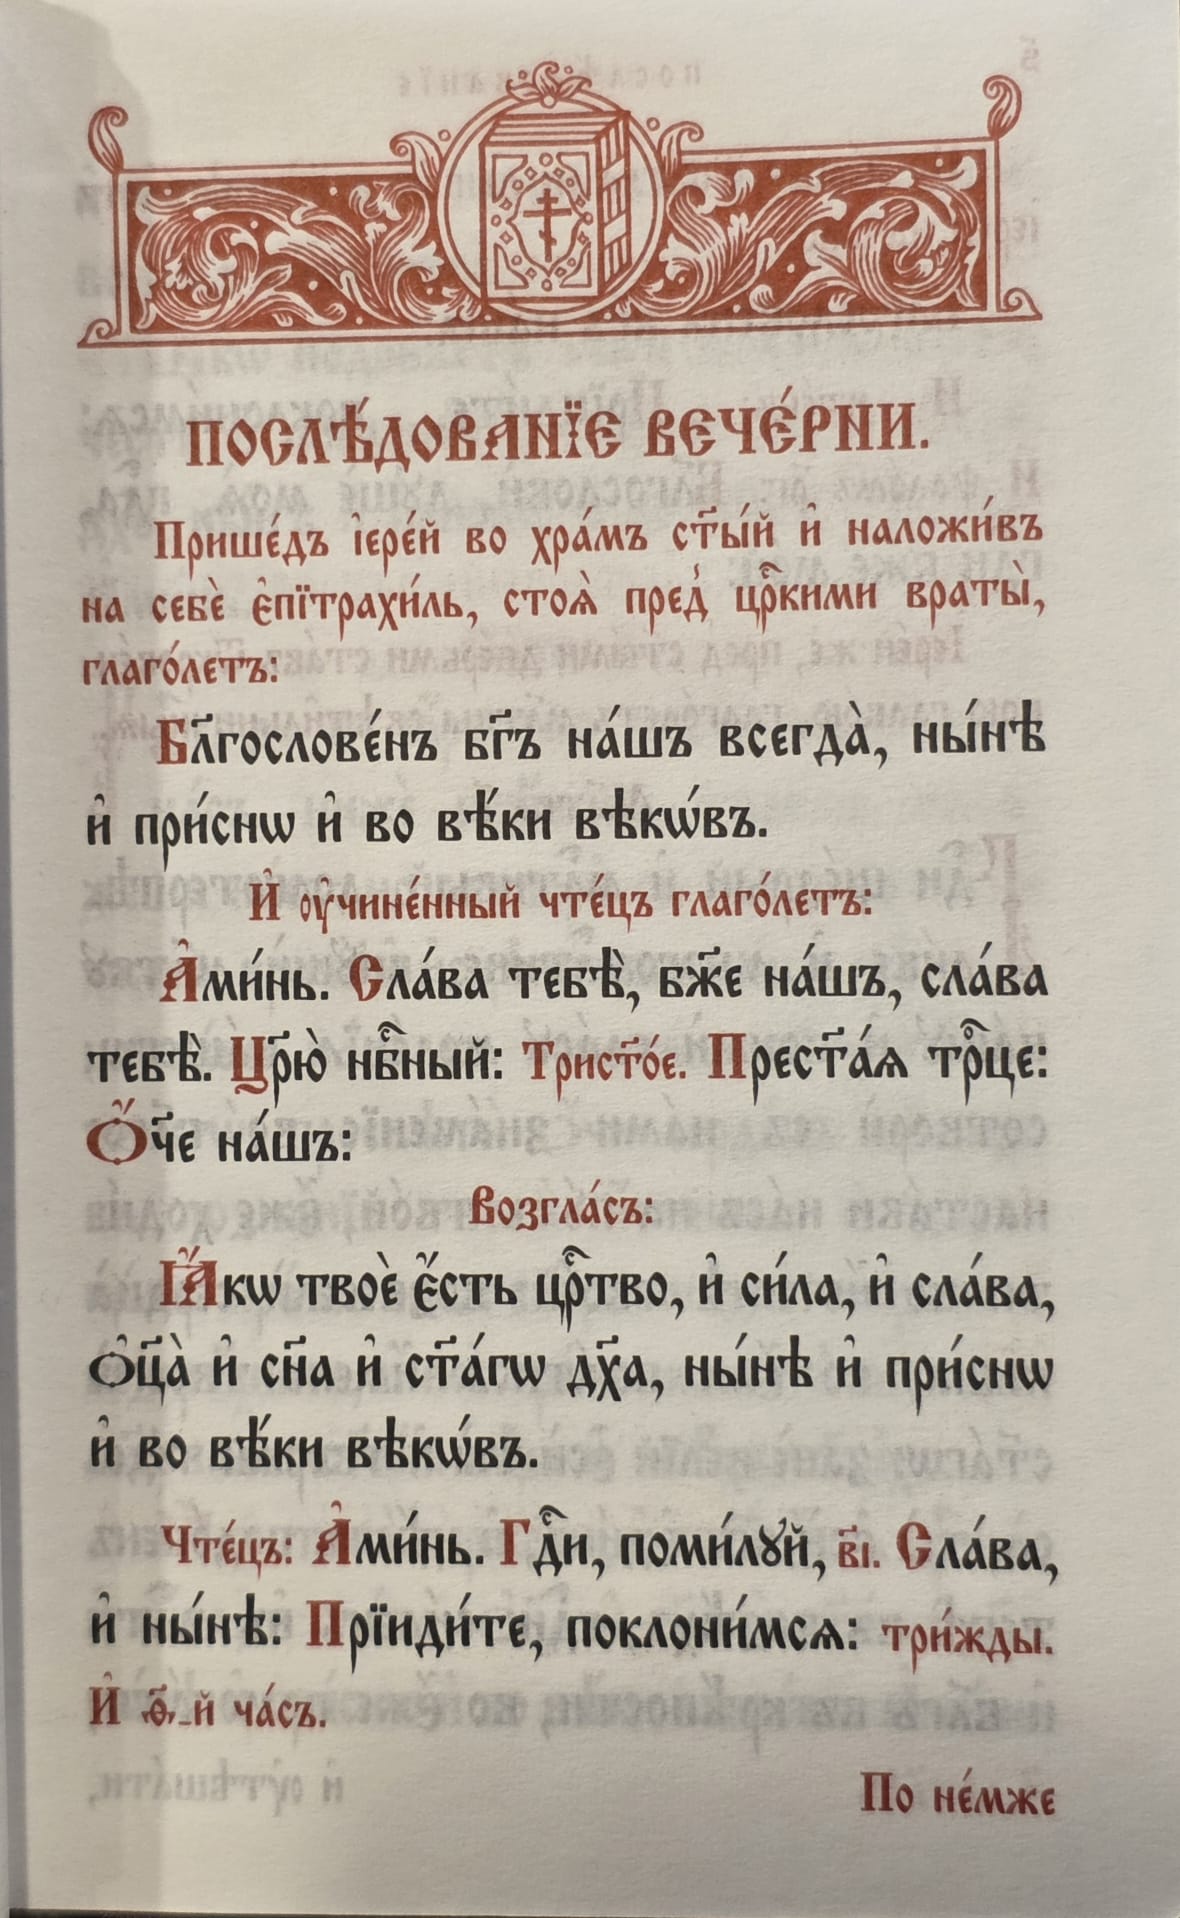 ПОСЛѢ́ДОВАНЇЕ ВЕЧЕ́РНИ.
Прише́дъ і҆ере́й во хра́мъ ст҃ы́й и҆ наложи́въ
на себѐ є҆пїтрахи́ль, стоѧ̀ пред̾ цр҃кими враты̀,
глаго́летъ:
Бл҃гослове́нъ бг҃ъ на́шъ всегда̀, ны́нѣ
и҆ при́снѡ и҆ во вѣ́ки вѣкѡ́въ.
И҆ ᲂу҆чине́нный чте́цъ глаго́летъ:
А҆ми́нь. Сла́ва тебѣ̀, бж҃е на́шъ, сла́ва
тебѣ̀. Цр҃ю̀ нбⷭ҇ный: Трист҃о́е. Прест҃а́ѧ трⷪ҇це:
Ѻ҆́ч҃е на́шъ:
Возгла́съ:
Ꙗ҆́кѡ твоѐ є҆́сть црⷭ҇тво, и҆ си́ла, и҆ сла́ва,
ѻ҆ц҃а̀ и҆ сн҃а и҆ ст҃а́гѡ дх҃а, ны́нѣ и҆ при́снѡ
и҆ во вѣ́ки вѣкѡ́въ.
Чте́цъ: А҆ми́нь. Гдⷭ҇и, поми́лꙋй, в҃і. Сла́ва,
и҆ ны́нѣ: Прїиди́те, поклони́мсѧ: три́жды.
И҆ ѳ҃-й ча́съ.
По не́мже